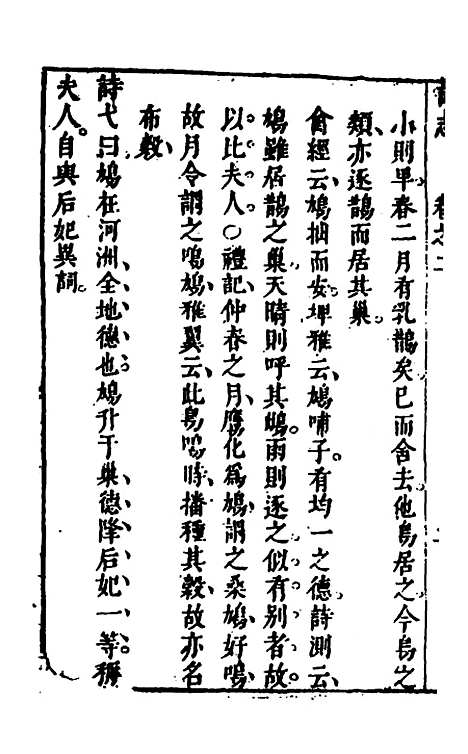 詩志　卷之二
小則早春二月有乳鵲矣已而舍去他鳥居之今鳥之
類亦逐鵲而居其巢
禽經云鳩拙而安埤雅云鳩哺子有均一之德詩測云
鳩雖居鵲之巢天晴則呼其鳩雨則逐之似有别者故
以比夫人○禮記仲春之月鷹化為鳩謂之桑鳩好鳴
故月令謂之鳴鳩雅翼云此鳥鳴時播種其穀故亦名
布穀
詩弋曰鳩在河洲全地德也鳩升于巢德降后妃一等稱
夫人自與后妃異詞